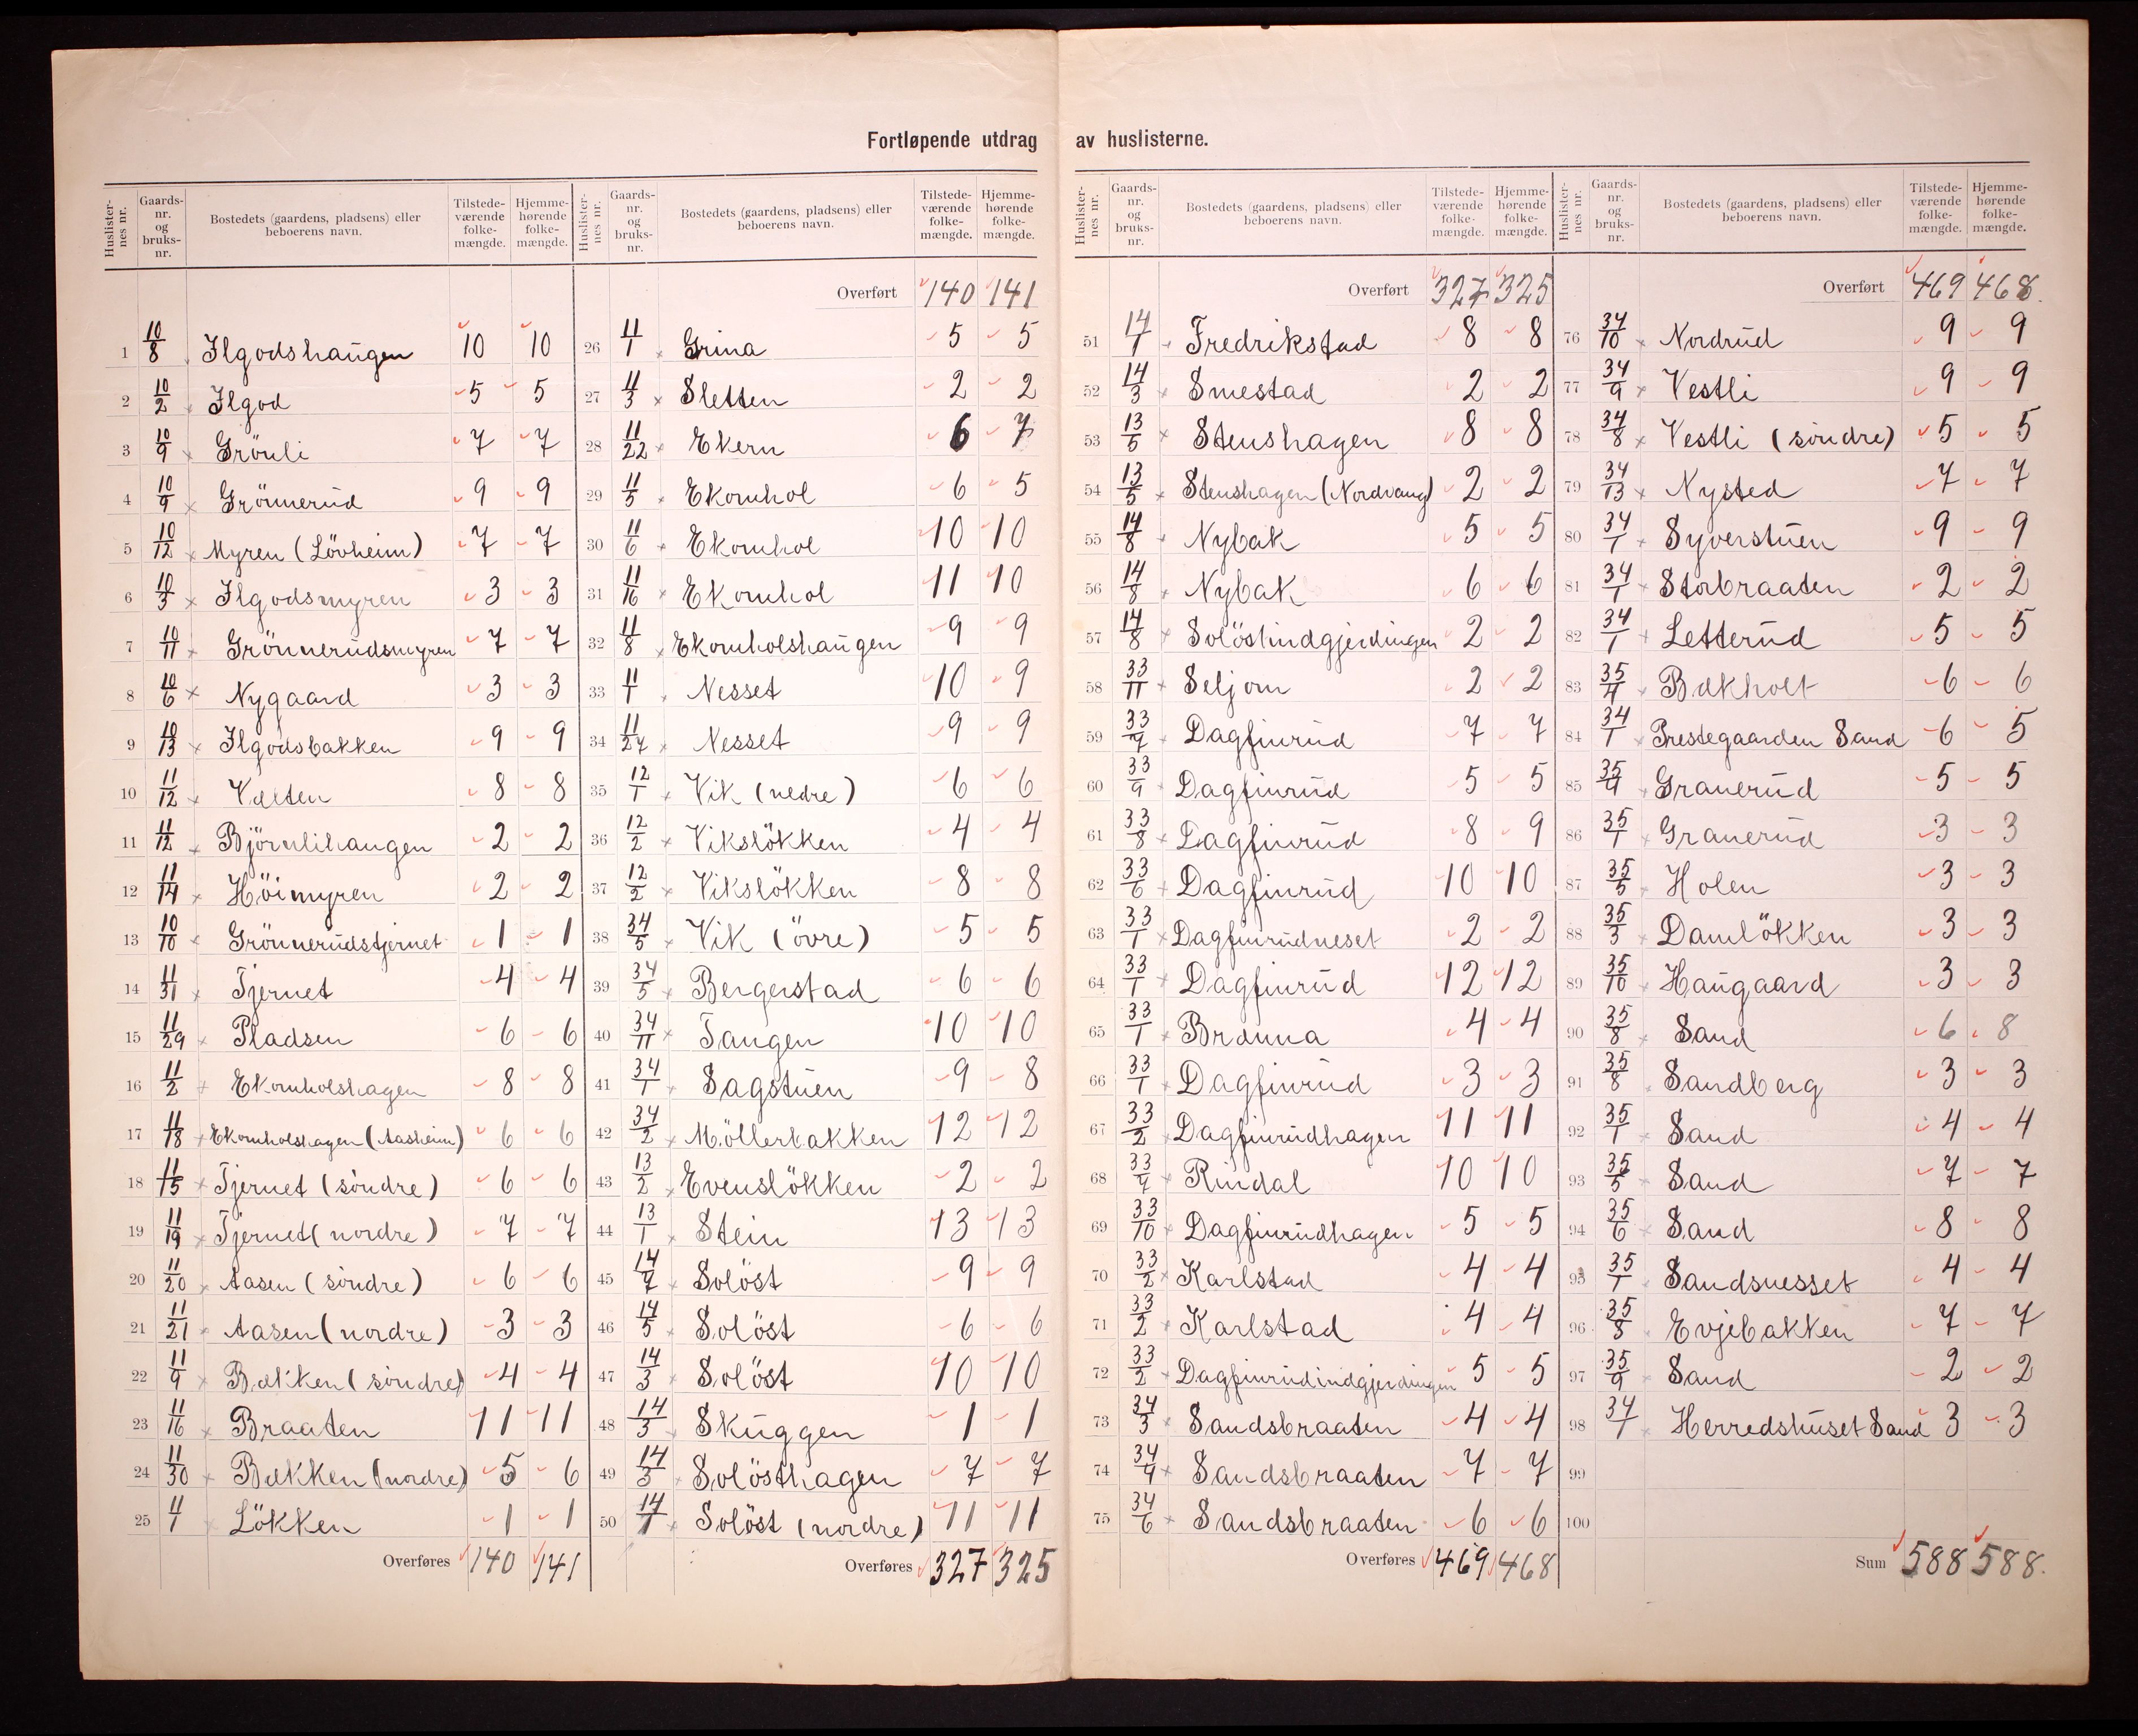 Fortløpende utdrag av huslisterne.
Huslisternes nr. | Gaardsnr. og bruksnr. | Bostedets (gaardens, pladsens) eller beboerens navn. | Tilstedeværende folkemængde. | Hjemmehørende folkemængde.
1 10/8 Ilgodshaugen 10 10
2 10/2 Ilgod 5 5
3 10/9 Grönli 7 7
4 10/9 Grönnerud 9 9
5 10/12 Myren (Lövheim) 7 7
6 10/3 Ilgodsmyren 3 3
7 10/11 Grönnerudsmyren 7 7
8 10/6 Nygaard 3 3
9 10/13 Ilgodsbakken 9 9
10 11/12 Vælten 8 8
11 11/12 Björnlihaugen 2 2
12 11/14 Höimyren 2 2
13 10/10 Grönnerudstjernet 1 1
14 11/31 Tjernet 4 4
15 11/29 Pladsen 6 6
16 11/2 Ekornholshagen 8 8
17 11/18 Ekornholshagen (Aasheim) 6 6
18 11/15 Tjernet (söndre) 6 6
19 11/19 Tjernet (nordre) 7 7
20 11/20 Aasen (söndre) 6 6
21 11/21 Aasen (nordre) 3 3
22 11/9 Bækken (söndre) 4 4
23 11/16 Braaten 11 11
24 11/30 Bækken (nordre) 5 6
25 11/1 Lökken 1 1
Overføres 140 141
Huslisternes nr. | Gaardsnr. og bruksnr. | Bostedets (gaardens, pladsens) eller beboerens navn. | Tilstedeværende folkemængde. | Hjemmehørende folkemængde.
Overført 140 141
26 11/1 Grina 5 5
27 11/3 Sletten 2 2
28 11/22 Ekern 6 7
29 11/5 Ekornhol 6 5
30 11/6 Ekornhol 10 10
31 11/16 Ekornhol 11 10
32 11/8 Ekornholshaugen 9 9
33 11/1 Nesset 10 9
34 11/24 Nesset 9 9
35 12/1 Vik (nedre) 6 6
36 12/2 Vikslökken 4 4
37 12/2 Vikslökken 8 8
38 34/5 Vik (övre) 5 5
39 34/5 Bergerstad 6 6
40 34/11 Tangen 10 10
41 34/1 Sagstuen 9 8
42 34/2 Möllerbakken 12 12
43 13/2 Evenslökken 2 2
44 13/1 Stein 13 13
45 14/7 Solöst 9 9
46 14/5 Solöst 6 6
47 14/3 Solöst 10 10
48 14/3 Skuggen 1 1
49 14/3 Solösthagen 7 7
50 14/1 Solöst (nordre) 11 11
Overføres 327 325
Huslisternes nr. | Gaardsnr. og bruksnr. | Bostedets (gaardens, pladsens) eller beboerens navn. | Tilstedeværende folkemængde. | Hjemmehørende folkemængde.
Overført 327 325
51 14/1 Fredrikstad 8 8
52 14/3 Smestad 2 2
53 13/5 Stenshagen 8 8
54 13/5 Stenshagen (Nordvang) 2 2
55 14/8 Nybak 5 5
56 14/8 Nybak 6 6
57 14/8 Solöstindgjerdingen 2 2
58 33/11 Seljom 2 2
59 33/7 Dagfinrud 7 7
60 33/9 Dagfinrud 5 5
61 33/8 Dagfinrud 8 9
62 33/6 Dagfinrud 10 10
63 33/1 Dagfinrudneset 2 2
64 33/1 Dagfinrud 12 12
65 33/1 Brænna 4 4
66 33/1 Dagfinrud 3 3
67 33/2 Dagfinrudhagen 11 11
68 33/4 Rindal 10 10
69 33/10 Dagfinrudhagen 5 5
70 33/2 Karlstad 4 4
71 33/2 Karlstad 4 4
72 33/2 Dagfinrudindgjerdingen 5 5
73 34/3 Sandsbraaten 4 4
74 34/4 Sandsbraaten 7 7
75 34/6 Sandsbraaten 6 6
Overføres 469 468
Huslisternes nr. | Gaardsnr. og bruksnr. | Bostedets (gaardens, pladsens) eller beboerens navn. | Tilstedeværende folkemængde. | Hjemmehørende folkemængde.
Overført 469 468.
76 34/10 Nordrud 9 9
77 34/9 Vestli 9 9
78 34/8 Vestli (söndre) 5 5
79 34/13 Nysted 7 7
80 34/1 Syverstuen 9 9
81 34/1 Storbraaten 2 2
82 34/1 Letterud 5 5
83 35/4 Bækholt 6 6
84 34/1 Prestegaarden Sand 6 5
85 35/4 Granerud 5 5
86 35/1 Granerud 3 3
87 35/5 Holen 3 3
88 35/3 Damlökken 3 3
89 35/10 Haugaard 3 3
90 35/8 Sand 6 8
91 35/8 Sandberg 3 3
92 35/1 Sand 4 4
93 35/5 Sand 7 7
94 35/6 Sand 8 8
95 35/1 Sandsnesset 4 4
96 35/8 Evjebakken 7 7
97 35/9 Sand 2 2
98 34/1 Herredshuset Sand 3 3
99
100
Sum 588 588.